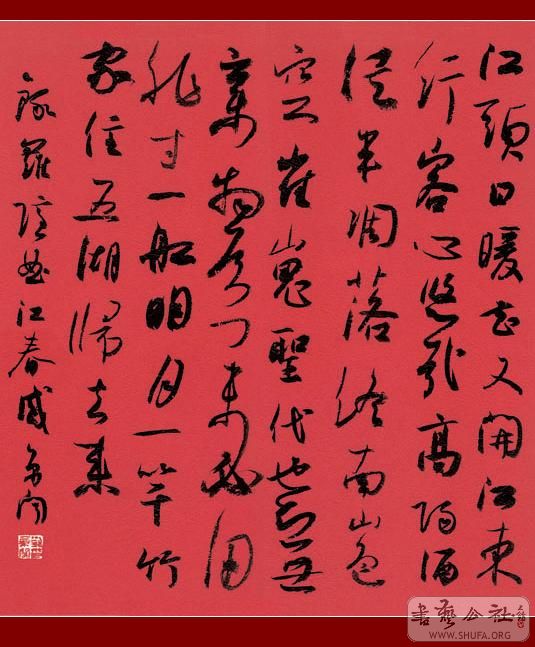 江頭日暖花又開江東
行客心悠哉高陽酒
徒半凋落終南山色
空崔嵬聖代也知無
棄物侯門未必用
非才一船明月一竿竹
家住五湖歸去來
錄羅隱曲江春感
書藝公社
WWW.SHUFA.ORG